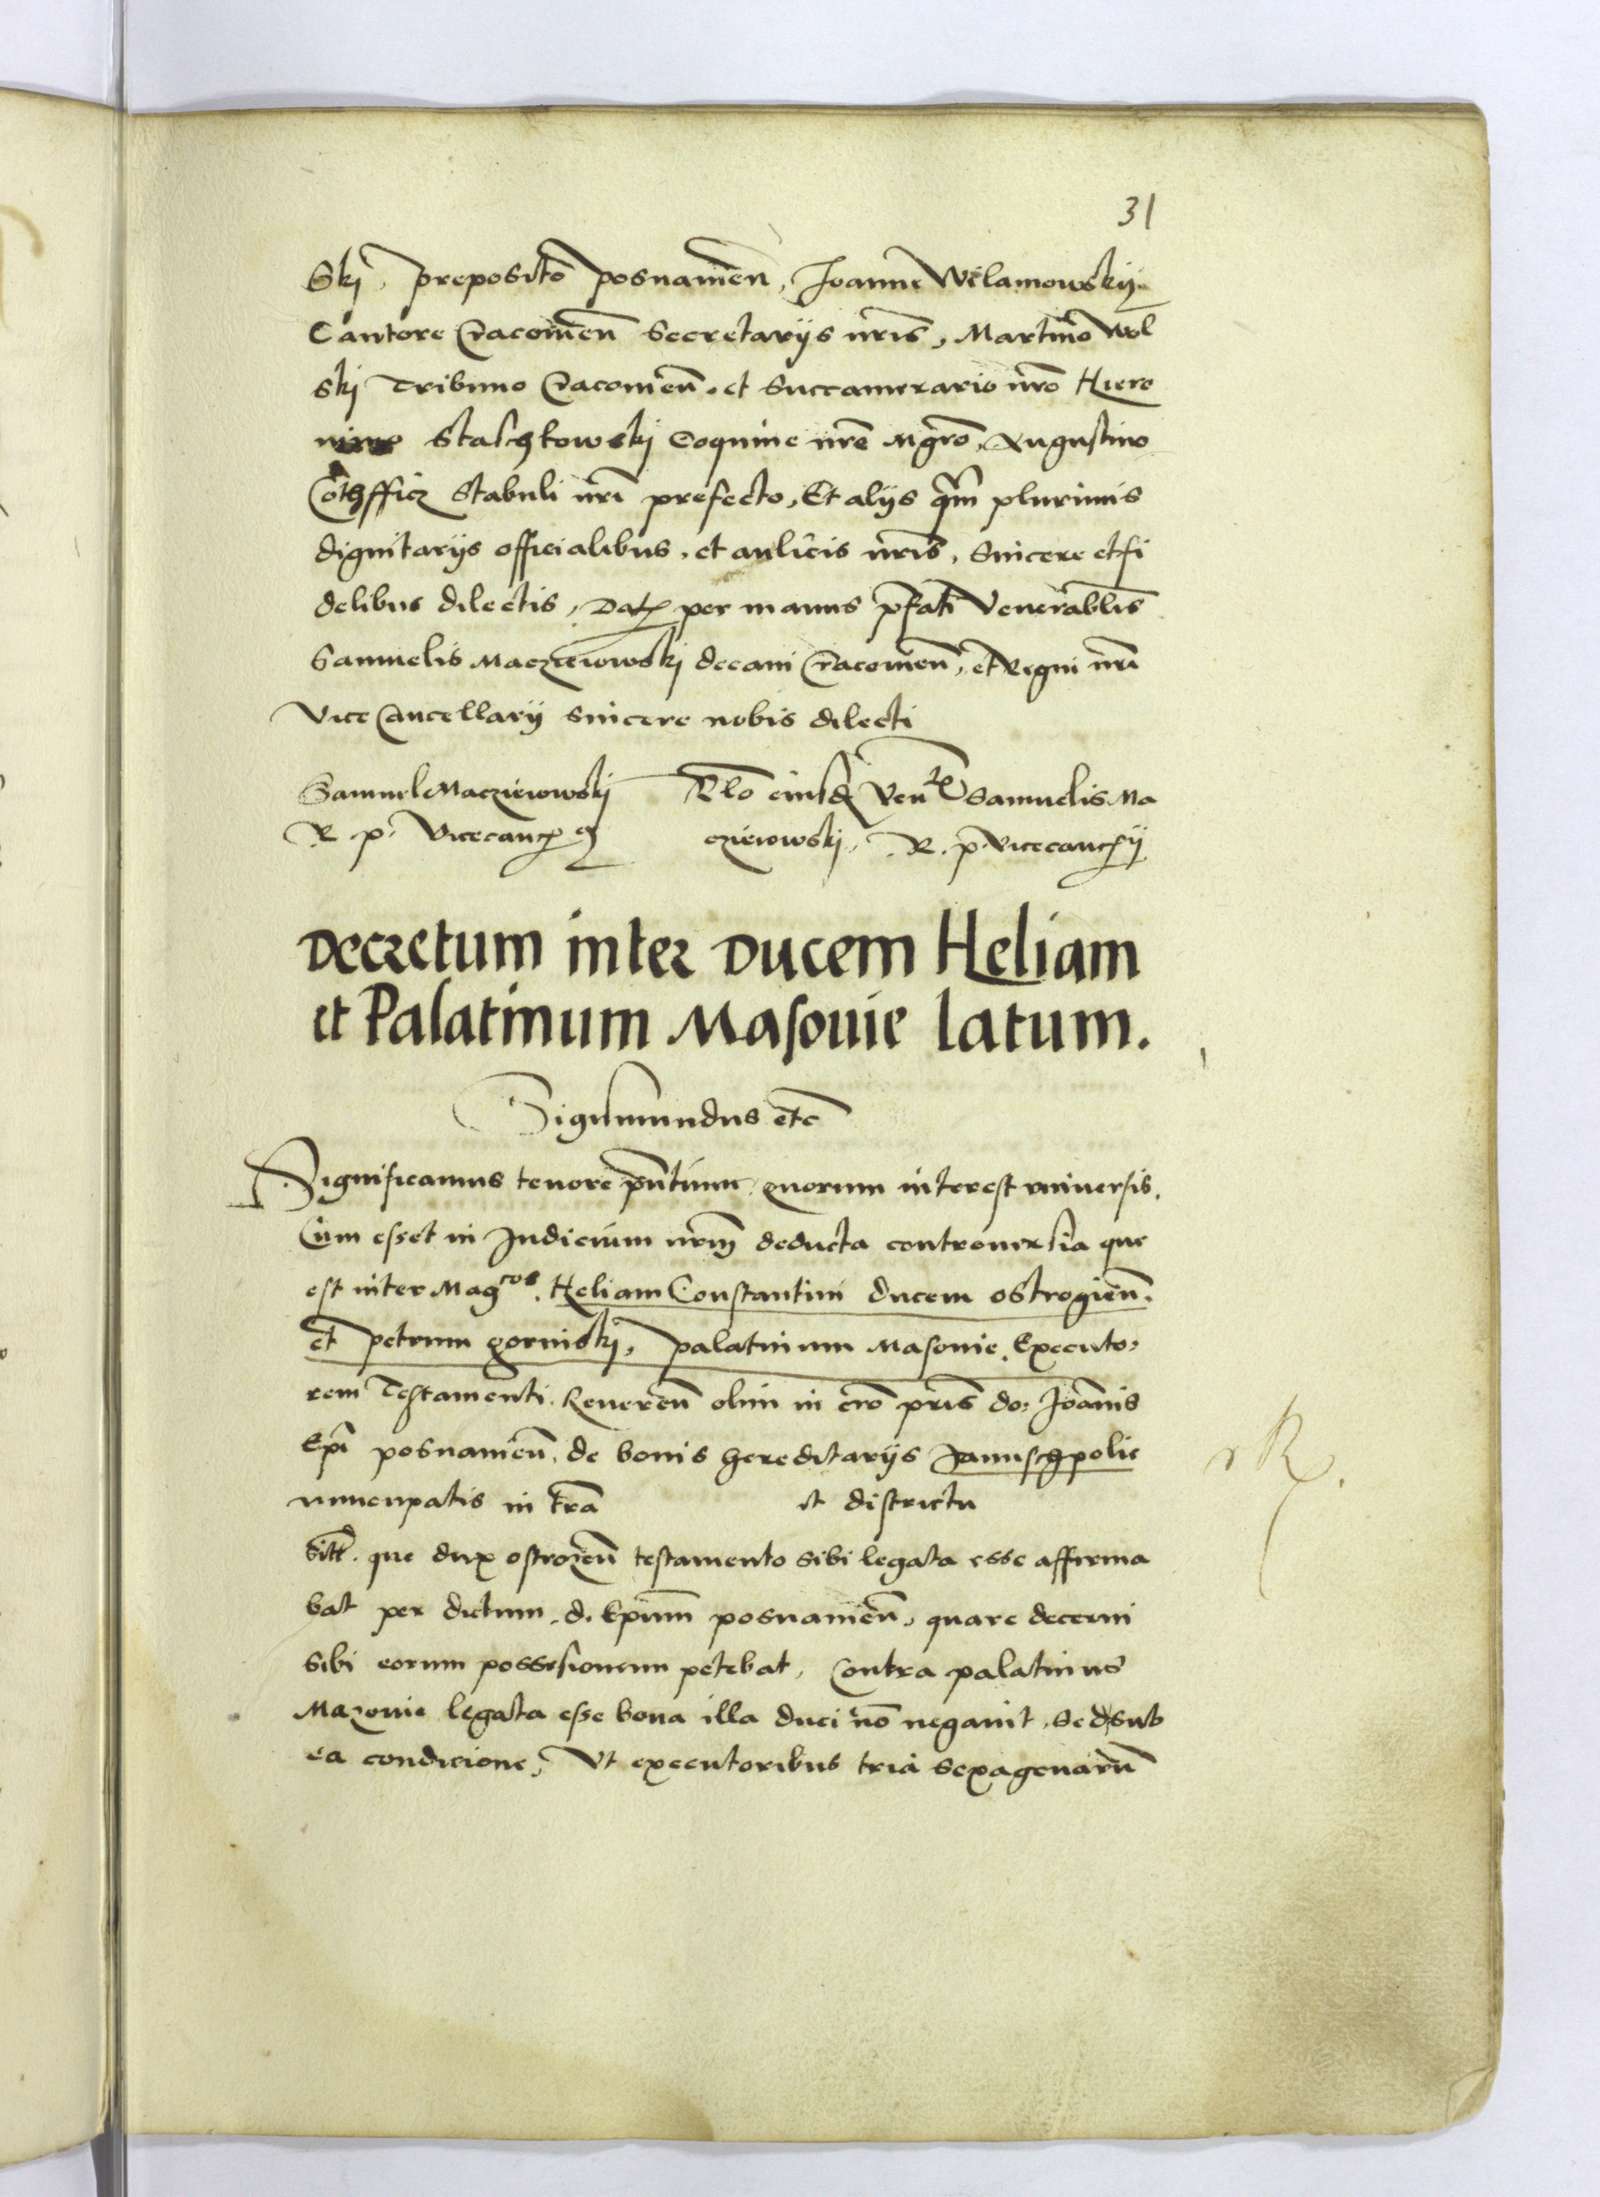 31
Skj, preposito posnanien, Joanne Wilamowskij
Cantore Cracovien Secretarijs nris, Martino Wol
skj Tribuno Cracovien. et Succamerario nro Hiero
nimo Staschkowskj Coquine nre Mgro, Augustino
Cothfficz Stabuli nri prefecto, Et alijs qm plurimis
dignitarijs officialibus, et aulicis nris, Sincere et fi
delibus dilectis, Dat per manus pfati Venerablis
Samuelis Maczieiowskj decani Cracovien, et Regni nri
Vice Cancellarij sincere nobis dilecti
Samuel Maczieiowskj
R. p. Vicecanc
Rlo eiusd Ven Samuelis Ma
czieiowskj, R. p. Vicecancrij
Decretum inter Ducem Heliam
et Palatinum Masovie latum.
Sigismundus etc
Significamus tenore pntium quorum interest universis,
Cum esset in Judicium nrm deducta controversia que
est inter Magcos. Heliam Constantini ducem ostrogien.
et petrum gorinskj, palatinum Masovie, Executo,
rem Testamenti. Reveren olim in cro pris do: Joannis
Epi posnanien. de bonis hereditarijs Januschpolie
nuncupatis in tra et districtu
sitt. que dux ostrozen testamento sibi legata esse affirma
bat per dictum. d. Epum posnanien, quare decerni
sibi eorum possesionem petebat, Contra palatinus
Mazovie legata esse bona illa duci no negavit, Sed sub
ea condicione, Ut executoribus tria sexagenaru
R.